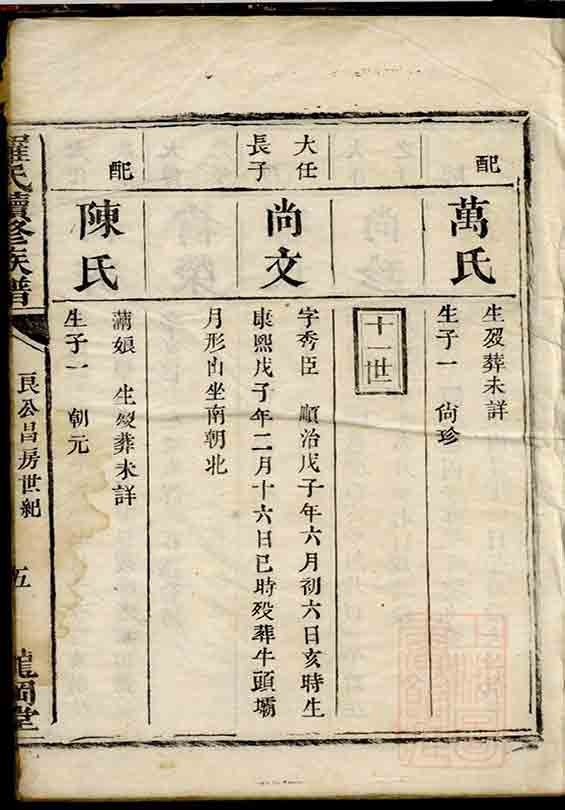 配
萬氏
生歿葬未詳
生子一 尙珍
十一世
大任
長子
尚文
字秀臣 順治戊子年六月初六日亥時生
康熙戊子年二月十六日巳時歿葬牛頭壩
月形內坐南朝北
配
陳氏
滿娘 生歿葬未詳
生子一 朝元
羅氏續修族譜
良公昌房世紀
五
龍岡堂